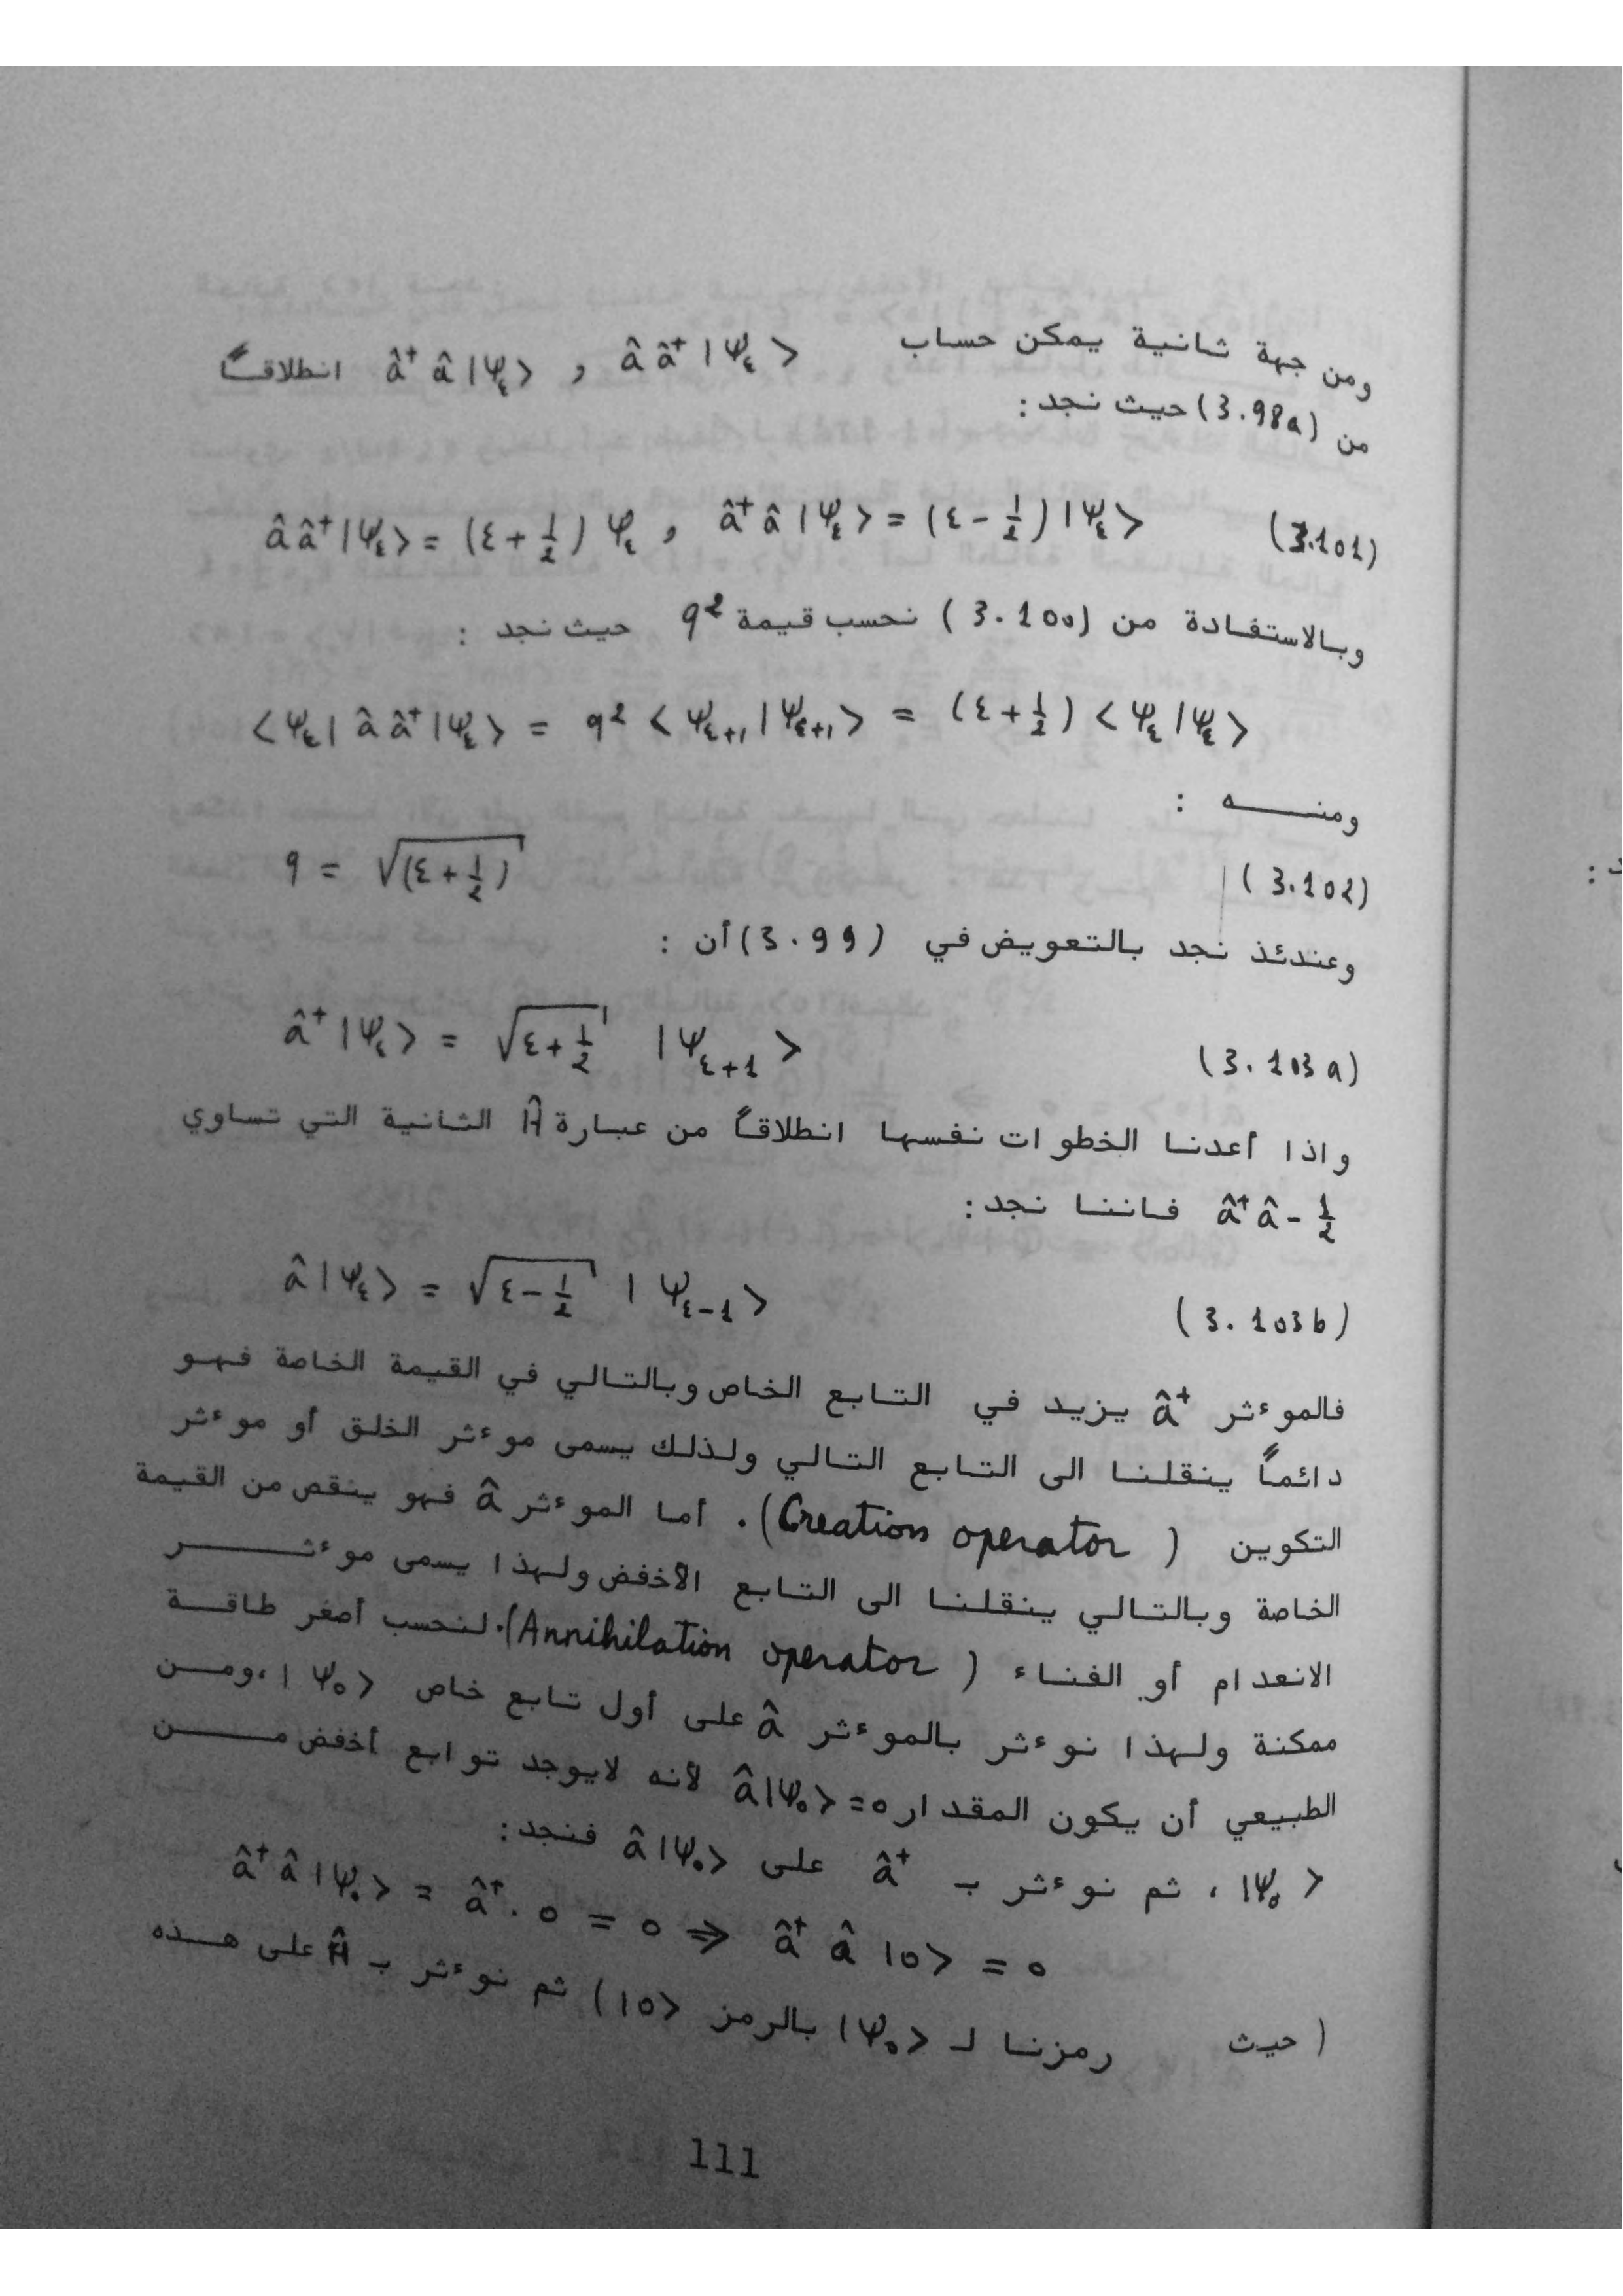 ومن جهة ثانية يمكن حساب â â⁺ |Ψ_ε> , â⁺ â |Ψ_ε> انطلاقاً
من (3.98a) حيث نجد :
â â⁺ |Ψ_ε> = (ε + 1/2) Ψ_ε , â⁺ â |Ψ_ε> = (ε - 1/2) |Ψ_ε> (3.101)
وبالاستفادة من (3.100) نحسب قيمة q² حيث نجد :
<Ψ_ε| â â⁺ |Ψ_ε> = q² <Ψ_ε+1 | Ψ_ε+1> = (ε + 1/2) <Ψ_ε | Ψ_ε>
ومنــه :
q = √(ε + 1/2) (3.102)
وعندئذ نجد بالتعويض في (3.99) أن :
â⁺ |Ψ_ε> = √ε + 1/2 |Ψ_ε+1> (3.103a)
واذا أعدنا الخطوات نفسها انطلاقاً من عبارة Ĥ الثانية التي تساوي
â⁺ â - 1/2 فاننا نجد :
â |Ψ_ε> = √ε - 1/2 | Ψ_ε-1> (3.103b)
فالموءثر â⁺ يزيد في التابع الخاص وبالتالي في القيمة الخاصة فهو
دائماً ينقلنا الى التابع التالي ولذلك يسمى موءثر الخلق أو موءثر
التكوين (Creation operator). أما الموءثر â فهو ينقص من القيمة
الخاصة وبالتالي ينقلنا الى التابع الأخفض ولهذا يسمى موءثــر
الانعدام أو الفناء (Annihilation operator). لنحسب أصغر طاقة
ممكنة ولهذا نوءثر بالموءثر â على أول تابع خاص |Ψ₀> ،ومن
الطبيعي أن يكون المقدار â|Ψ₀> = 0 لأنه لايوجد توابع أخفض مــن
|Ψ₀> ، ثم نوءثر بـ â⁺ على â|Ψ₀> فنجد :
â⁺ â |Ψ₀> = â⁺ . 0 = 0 ⇒ â⁺ â |0> = 0
(حيث رمزنا لـ |Ψ₀> بالرمز |0>) ثم نوءثر بـ Ĥ على هــذه
111